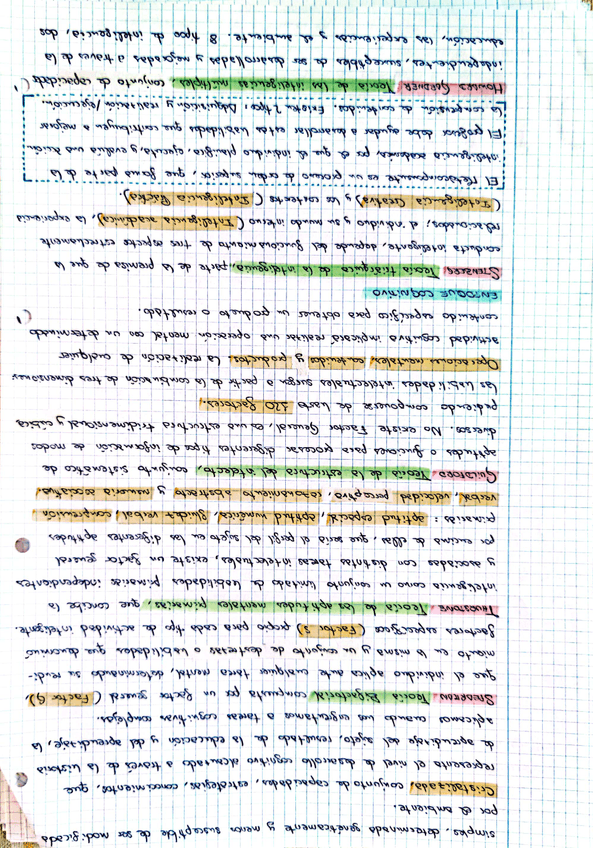 simples, determinada genéticamente y menos susceptible de ser modificada
por el ambiente.
Cristalizada, conjunto de capacidades, estrategias, conocimientos, que
representa el nivel de desarrollo cognitivo alcanzado a través de la historia
de aprendizaje del sujeto, resultado de la educación y del aprendizaje, la
aplicamos cuando nos enfrentamos a tareas cognitivas complejas.
SPEARMAN. Teoría Bifactorial compuesta por un factor general (Factor G),
que el individuo aplica ante cualquier tarea mental, determinando su rendi-
miento en la misma y un conjunto de destrezas o habilidades que denominó
factores específicos (Factor s) propio para cada tipo de actividad inteligente.
THURSTONE. Teoría de las aptitudes mentales primarias, que concibe la
inteligencia como un conjunto limitado de habilidades primarias independientes
y asociadas con distintas tareas intelectuales, existe un factor general
por encima de ellas, que sería el perfil del sujeto en las diferentes aptitudes
primarias: aptitud espacial, aptitud numérica, fluidez verbal, comprensión
verbal, velocidad perceptiva, razonamiento abstracto y memoria asociativa.
GUILDFORD. Teoría de la estructura del intelecto, conjunto sistemático de
aptitudes o funciones para procesar diferentes tipos de información de modos
diversos. No existe Factor General, es una estructura tridimensional y cúbica
pudiendo componerse de hasta 120 factores.
Las habilidades intelectuales surgen a partir de la combinación de tres dimensiones
Operaciones mentales, contenidos y productos. La realización de cualquier
actividad cognitiva implicará realizar una operación mental con un determinado
contenido específico para obtener un producto o resultado.
ENFOQUE COGNITIVO
STENBERG. Teoría triárquica de la inteligencia, parte de la premisa de que la
conducta inteligente, depende del funcionamiento de tres aspectos estrechamente
relacionados, el individuo y su mundo interno (Inteligencia académica), la experiencia
(Inteligencia Creativa) y los contextos (Inteligencia Práctica).
El Metacomponente es un proceso de orden superior, que forma parte de la
inteligencia académica, por el que el individuo planifica, ejecuta, y evalúa una acción
El profesor debe ayudar a desarrollar estas habilidades que contribuyen a mejorar
la comprensión de contenidos. Existen 2 tipos: Adquisición y realización/ejecución.
HOWARD GARDNER. Teoría de las inteligencias múltiples, conjunto de capacidades
independientes, susceptibles de ser desarrolladas y mejoradas a través de la
educación, las experiencias y el ambiente. 8 tipos de inteligencia, dos